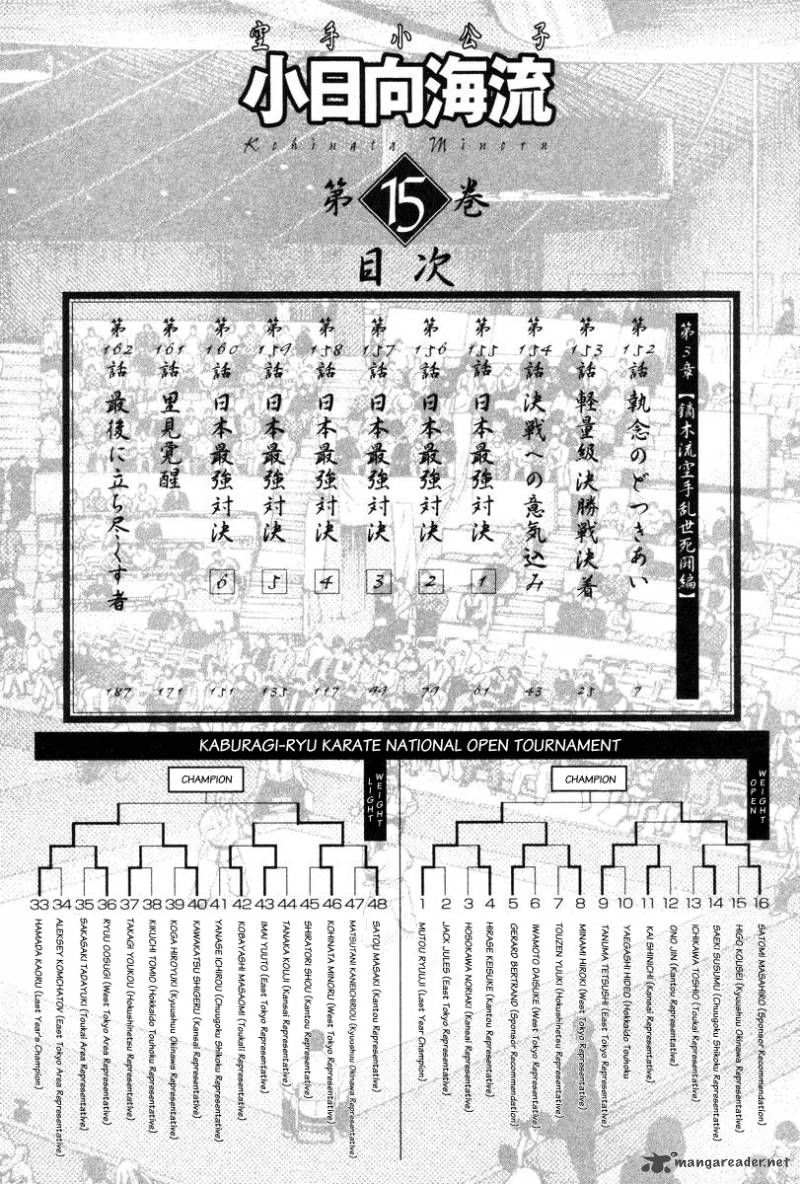 空手小公子
小日向海流
Kohinata Minoru
第15巻
目次
第5章【鏑木流空手乱世死闘編】
第152話 執念のどつきあい 7
第153話 軽量級決勝戦決着 25
第154話 決戦への意気込み 43
第155話 日本最強対決 1 61
第156話 日本最強対決 2 79
第157話 日本最強対決 3 99
第158話 日本最強対決 4 117
第159話 日本最強対決 5 135
第160話 日本最強対決 6 151
第161話 里見覚醒 171
第162話 最後に立ち尽くす者 187
KABURAGI-RYU KARATE NATIONAL OPEN TOURNAMENT
LIGHT WEIGHT
CHAMPION
33 HAMADA KAORU (Last Year's Champion)
34 ALEKSEY KOMCHATOV (East Tokyo Area Representative)
35 SAKASAKI TADAYUKI (Toukai Area Representative)
36 RYUU OOSUGI (West Tokyo Area Representative)
37 TAKAGI YOUKOU (Hokushinetsu Representative)
38 KIKUCHI TOMIO (Hokkaido Touhoku Representative)
39 KOGA HIROYUKI (Kyuushuu Okinawa Representative)
40 KAWAKATSU SHIGERU (Kansai Representative)
41 YANASE OHIROU (Chuugoku Shikoku Representative)
42 KOBAYASHI MASAOMI (Toukai Representative)
43 IMAI YUUTO (East Tokyo Representative)
44 TANAKA KOUJI (Kansai Representative)
45 SHIRATORI SHOU (Kantou Representative)
46 KOHINATA MINORU (West Tokyo Representative)
47 MATSUTANI KANEICHIROU (Kyuushuu Okinawa Representative)
48 SATOU MASAKI (Kantou Representative)
OPEN WEIGHT
CHAMPION
1 MUTOU RYUUJI (Last Year Champion)
2 JACK JULES (East Tokyo Representative)
3 HOSOKAWA NORIAKI (Kansai Representative)
4 HIRASE KEISUKE (Kantou Representative)
5 GERARD BERTRAND (Sponsor Recommendation)
6 IWAMOTO DAISUKE (West Tokyo Representative)
7 TOUZEN YUUKI (Hokushinetsu Representative)
8 MINAMI HIROKI (West Tokyo Representative)
9 TANUMA TETSUSHI (East Tokyo Representative)
10 YAEGASHI HIDEO (Hokkaido Touhoku
11 KAI SHINICHI (Kansai Representative)
12 ONO JIN (Kantou Representative)
13 ICHIKAWA TOSHIO (Toukai Representative)
14 SAEKI SUSUMU (Chuugoku Shikoku Representative)
15 HIGO KOUSEI (Kyuushuu Okinawa Representative)
16 SATOMI MASAHIKO (Sponsor Recommendation)
mangareader.net